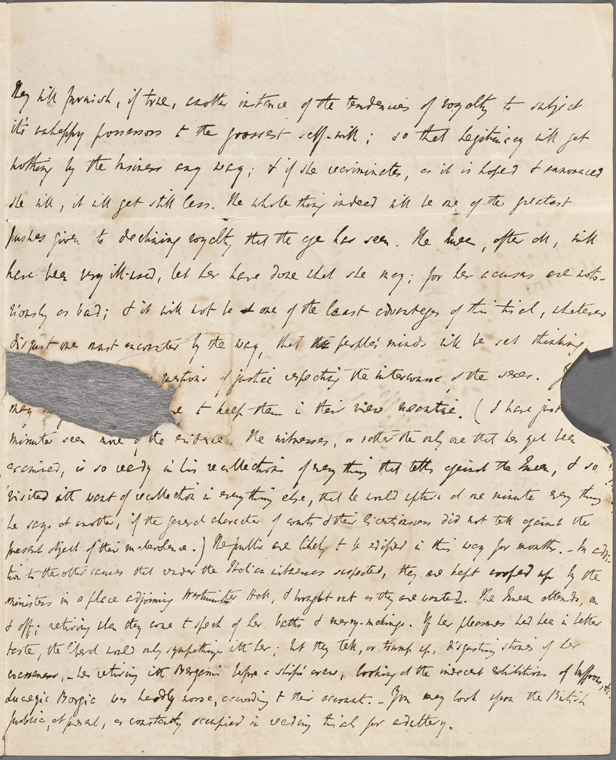 they will furnish, if true, another instance of the tendencies of royalty to subject
it's unhappy possessors to the grossest self-will; so that legitimacy will get
nothing by the business any way; & if she recriminates, as it is hoped & announced
she will, it will get still less. The whole thing indeed will be one of the greatest
pushes given to declining royalty that the age has seen. The Queen, after all, will
have been very ill-used, let her have done what she may; for her accusers are noto-
riously as bad; & it will not be one of the least advantages of this trial, whatever
disgust one must encounter by the way, that the people's minds will be set thinking
questions of justice respecting the intercourse of the sexes.
may to keep them in their view meantime. (I have just
minutes seen more of the evidence. The witnesses, or rather the only one that has yet been
examined, is so ready in his recollections of every thing that tells against the Queen, & so
visited with want of recollection in every thing else, that he would upset at one minute every thing
he says at another, if the general character of courts & their licentiousness did not tell against the
present object of their malevolence.) The public are likely to be edified in this way for months. - In addi-
tion to the other causes that render the Italian witnesses suspected, they are kept cooped up by the
ministers in a place adjoining Westminster Hall, & brought out as they are wanted. The Queen attends, on
& off; retiring when they come to speak of her baths & merry-makings. If her pleasures had been in better
taste, the liberal would only sympathize with her; but they tell, or trump up, disgusting stories of her
coarseness, - her retiring with Bergami before a ship's crew, looking at the indecent exhibitions of buffoons, &c.
Lucrezia Borgia was hardly worse, according to their account. - You may look upon the British
public, at present, as constantly occupied in reading trials for adultery.